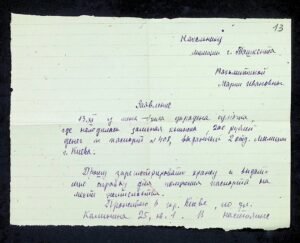 13
Начальнику
милиции г. Ташкента
Марии Ивановны
Заявление
13.XI у меня была украдена сумочка
где находилась записная книжка, 200 рублей
денег и паспорт № 408, выданный 2 отд. Милиции
г. Киева.
Прошу зарегистрировать кражу и выдать
мне справку для получения паспорта на
месте жительства.
Проживаю в гор. Киеве, по ул.
Калинина 25, кв. 1. В настоящее